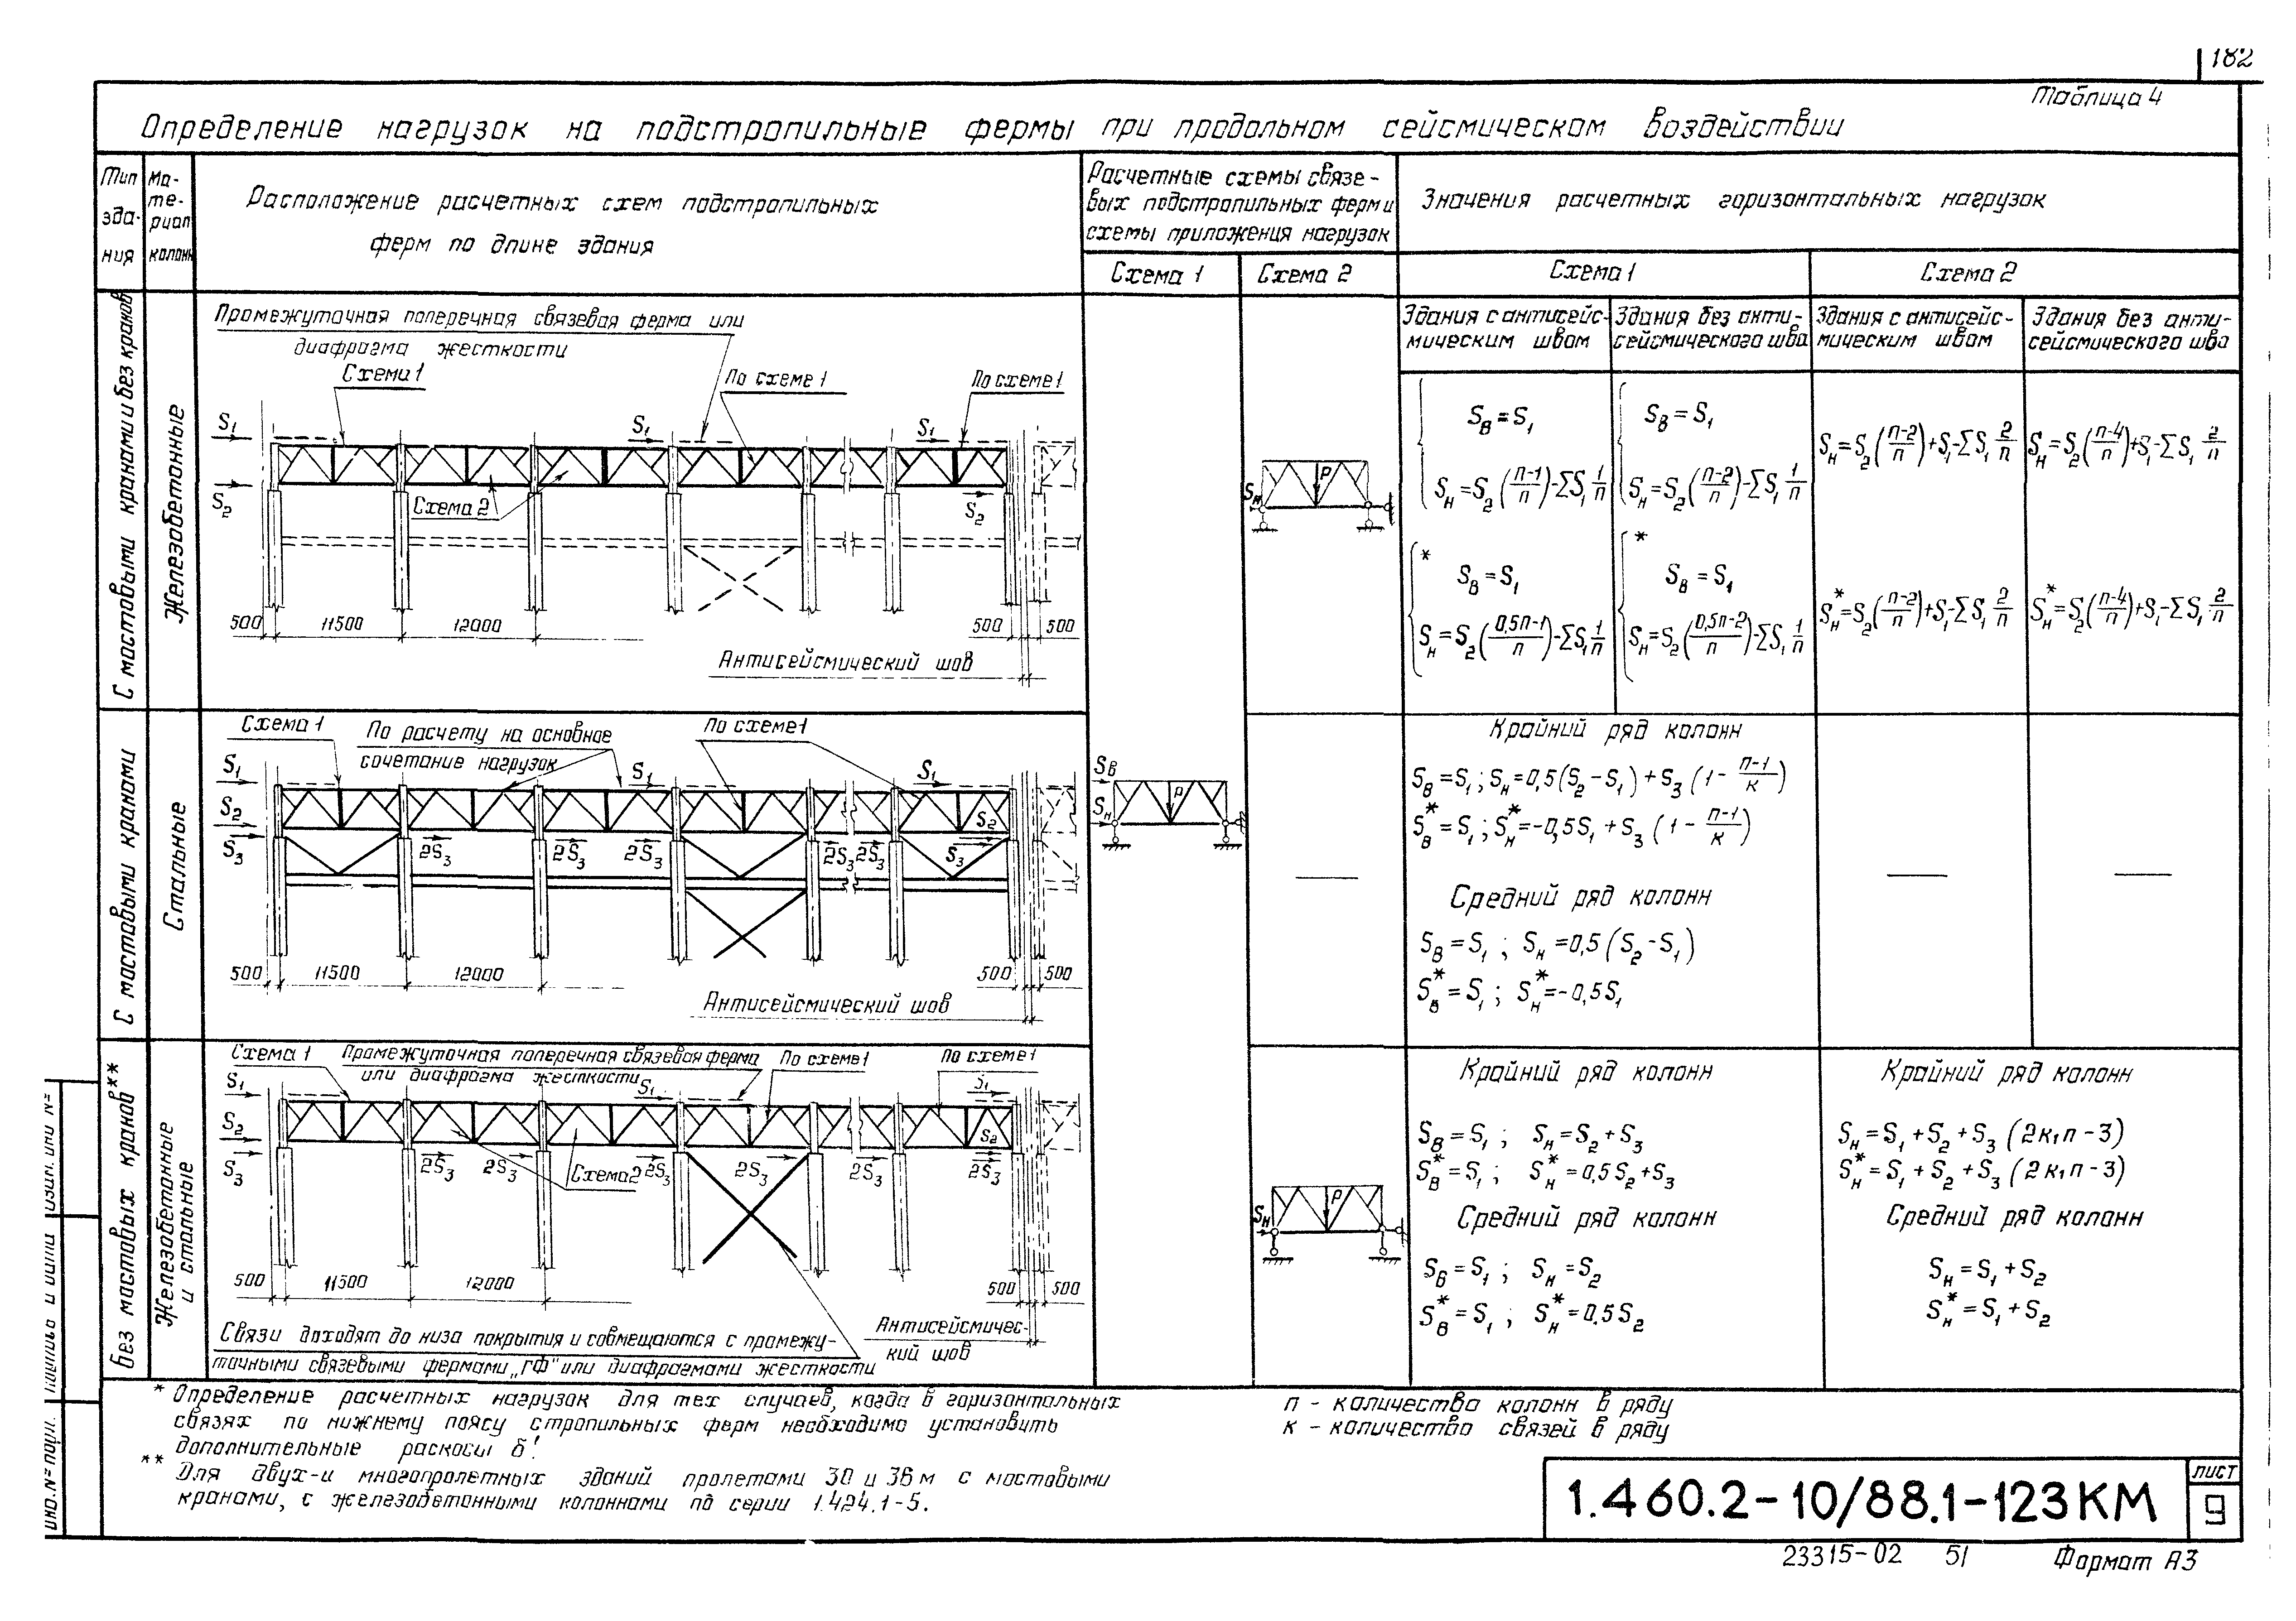 182
Таблица 4
Определение нагрузок на подстропильные фермы при продольном сейсмическом воздействии
Тип здания
Материал колонн
Расположение расчетных схем подстропильных
ферм по длине здания
Расчетные схемы связе-
вых подстропильных ферм и
схемы приложения нагрузок
Значения расчетных горизонтальных нагрузок
Схема 1
Схема 2
Схема 1
Схема 2
Здания с антисейс-
мическим швом
Здания без анти-
сейсмического шва
Здания с антисейс-
мическим швом
Здания без анти-
сейсмического шва
С мостовыми кранами и без кранов
Железобетонные
Промежуточная поперечная связевая ферма или
диафрагма жесткости
Схема 1
По схеме 1
По схеме 1
S₁ S₁ S₁
S₂ Схема 2 S₂
500 11500 12000 500 500
Антисейсмический шов
Sн P
Sв = S₁
Sн = S₂ ((п-1)/п) - ΣS₁ 1/п
* Sв = S₁
Sн = S₂ ((0,5п-1)/п) - ΣS₁ 1/п
Sв = S₁
Sн = S₂ ((п-2)/п) - ΣS₁ 1/п
* Sв = S₁
Sн = S₂ ((0,5п-2)/п) - ΣS₁ 1/п
Sн = S₂ ((п-2)/п) + S₁ - ΣS₁ 2/п
Sн* = S₂ ((п-2)/п) + S₁ - ΣS₁ 2/п
Sн = S₂ ((п-4)/п) + S₁ - ΣS₁ 2/п
Sн* = S₂ ((п-4)/п) + S₁ - ΣS₁ 2/п
С мостовыми кранами
Стальные
Схема 1
По расчету на основное
сочетание нагрузок
По схеме 1
S₁ S₁ S₁
S₂ S₂
S₃ 2S₃ 2S₃ 2S₃ 2S₃ 2S₃ S₃
500 11500 12000 500 500
Антисейсмический шов
Sв
Sн P
Крайний ряд колонн
Sв = S₁ ; Sн = 0,5 (S₂ - S₁) + S₃ (1 - (п-1)/к)
Sв* = S₁ ; Sн* = -0,5S₁ + S₃ (1 - (п-1)/к)
Средний ряд колонн
Sв = S₁ ; Sн = 0,5 (S₂ - S₁)
Sв* = S₁ ; Sн* = -0,5S₁
Без мостовых кранов**
Железобетонные
и стальные
Схема 1
Промежуточная поперечная связевая ферма
или диафрагма жесткости
По схеме 1
По схеме 1
S₁ S₁ S₁
S₂ S₂
S₃ 2S₃ 2S₃ Схема 2 2S₃ 2S₃ 2S₃ 2S₃
500 11500 12000 500 500
Связи доходят до низа покрытия и совмещаются с промежу-
точными связевыми фермами „ГФ" или диафрагмами жесткости
Антисейсмичес-
кий шов
Sн P
Крайний ряд колонн
Sв = S₁ ; Sн = S₂ + S₃
Sв* = S₁ ; Sн* = 0,5 S₂ + S₃
Средний ряд колонн
Sв = S₁ ; Sн = S₂
Sв* = S₁ ; Sн* = 0,5 S₂
Крайний ряд колонн
Sн = S₁ + S₂ + S₃ (2к₁п - 3)
Sн* = S₁ + S₂ + S₃ (2к₁п - 3)
Средний ряд колонн
Sн = S₁ + S₂
Sн* = S₁ + S₂
* Определение расчетных нагрузок для тех случаев, когда в горизонтальных
связях по нижнему поясу стропильных ферм необходимо установить
дополнительные раскосы б'.
** Для двух-и многопролетных зданий пролетами 30 и 36 м с мостовыми
кранами, с железобетонными колоннами по серии 1.424.1-5.
п - количество колонн в ряду
к - количество связей в ряду
1.460.2-10/88.1-123КМ
Лист
9
23315-02 51 Формат А3
Инв. № подл.
Подпись и дата